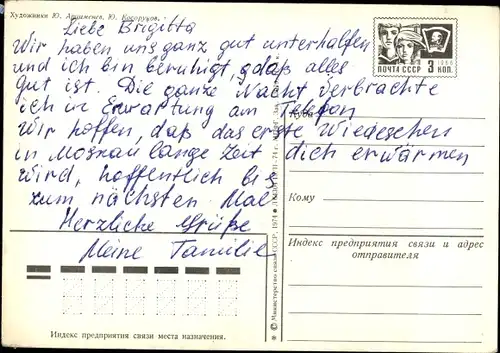 Художники Ю. Артименев, Ю. Косоруков.
Liebe Brigitta
Wir haben uns ganz gut unterhalten
und ich bin beruhigt, daß alles
gut ist. Die ganze Nacht verbrachte
ich in Erwartung am Telefon
Wir hoffen, daß das erste Wiedesehen
in Moskau lange Zeit dich erwärmen
wird, hoffentlich bis
zum nächsten Mal
Herzliche Grüße
Meine Familie
ПОЧТА СССР 3 КОП.
1966
Куда
Кому
Индекс предприятия связи и адрес
отправителя
Индекс предприятия связи места назначения.
© Министерство связи СССР, 1974